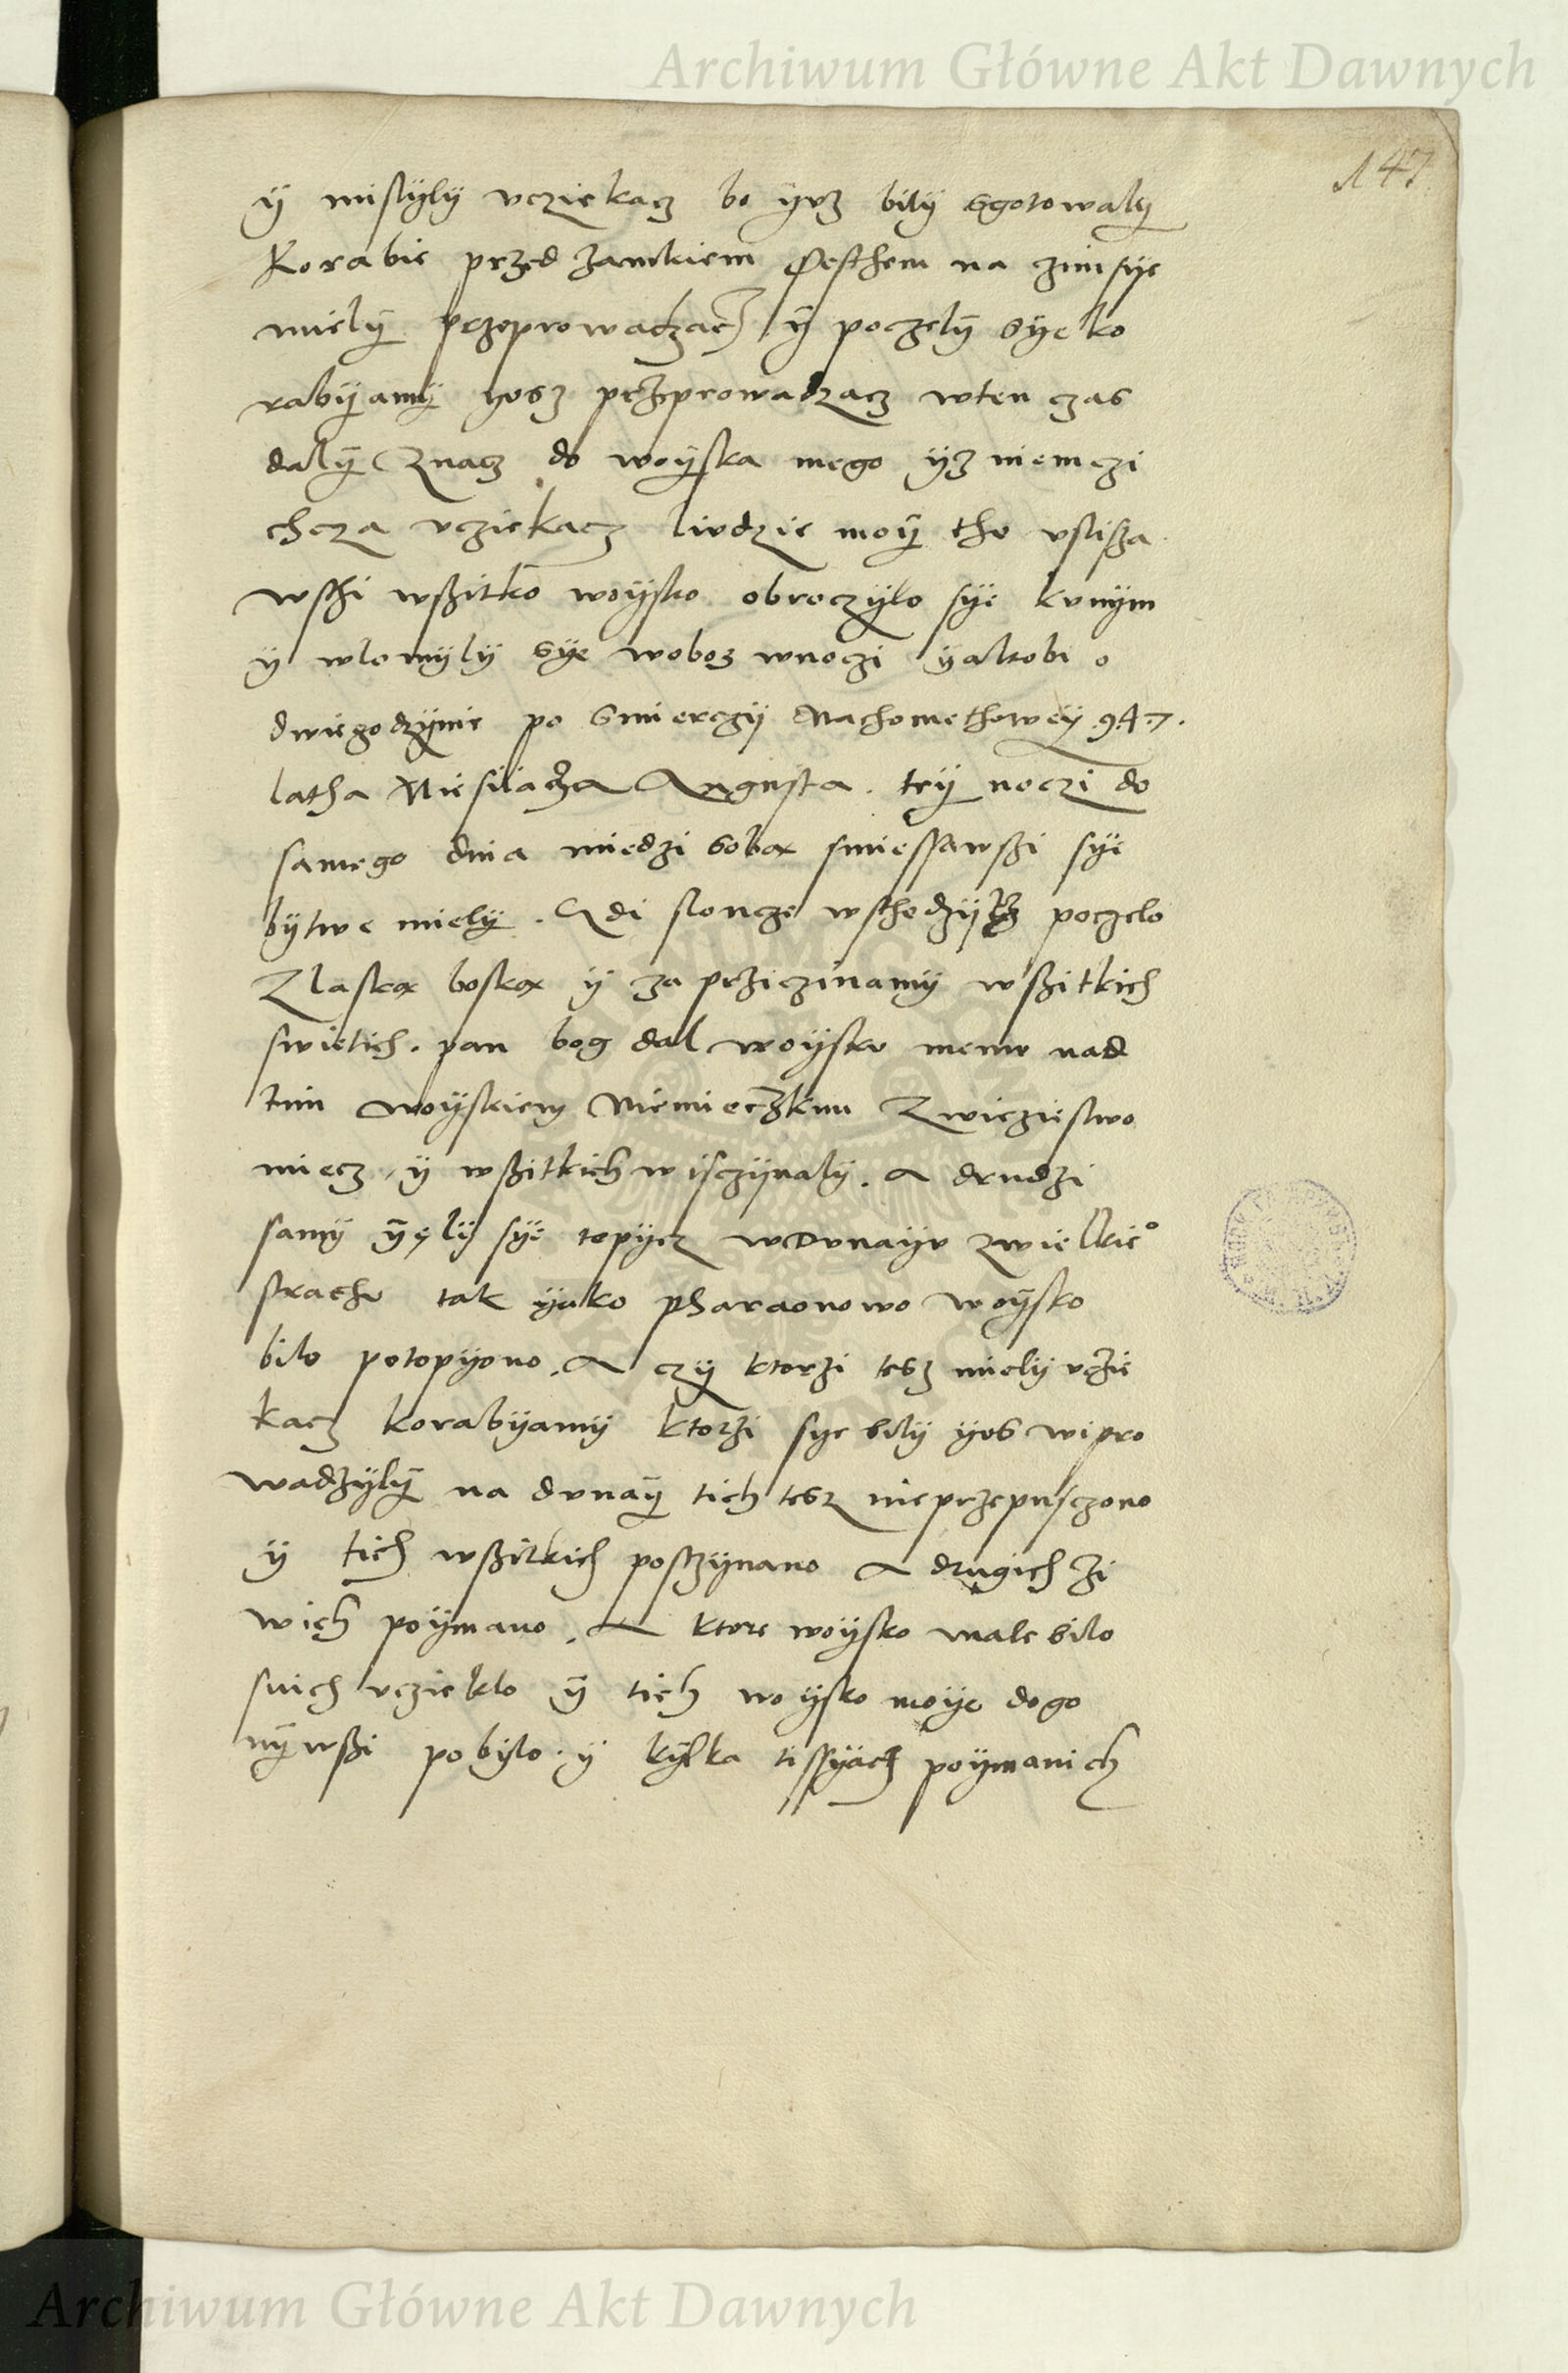 Archiwum Główne Akt Dawnych
147
ÿ mislÿlÿ vcziekacz bo ÿvz bilÿ sgotowalÿ
Korabie przed zamkiem Pesthem na czim sÿe
mielÿ przeprowadzacz ÿ poczelÿ sÿe ko
rabÿamÿ przeprowadzacz wten czas
dalÿ znacz do woÿska mego ÿz niemczi
chcza vcziekacz liudzie moÿ tho vslisza
wszi wszitko woÿsko obroczÿlo sÿe knnÿm
ÿ wlomÿlÿ sÿe woboz wnoczi ÿakobi o
dwiegodzÿnie po smierczÿ Machomethoweÿ 947.
latha Miesiacza Augusta. teÿ noczi do
samego dnia miedzi soba smieszawszi sÿe
bÿtwe mielÿ. Gdi sloncze wschodzÿcz poczelo
Z laska boska ÿ za przicz​inamÿ wszitkich
swietich. pan bog dal woÿsku memu nad
tim woÿskiem Niemieczkim Zwiciestwo
miecz ÿ wszitkich wisczÿnalÿ. a drudzi
samÿ ÿelÿ sÿe topÿcz wDunaÿu zwielkieº
strachu tak ÿako pharaonowo woÿsko
bilo potopÿono. A czÿ ktorzi tesz mielÿ vczie
kacz korabÿamÿ ktorzi sÿe bilÿ ÿus wipro
wadzÿlÿ na dunaÿ tich tesz nieprzepusczono
ÿ tich wszitkich posczÿnano a drugich zi
wich poÿmano. A ktore woÿsko male bilo
snich vcieklo ÿ tich woÿsko moÿe dogo
nÿwszi pobÿlo. ÿ kÿlka tissÿacz poÿmanich
Archiwum Główne Akt Dawnych